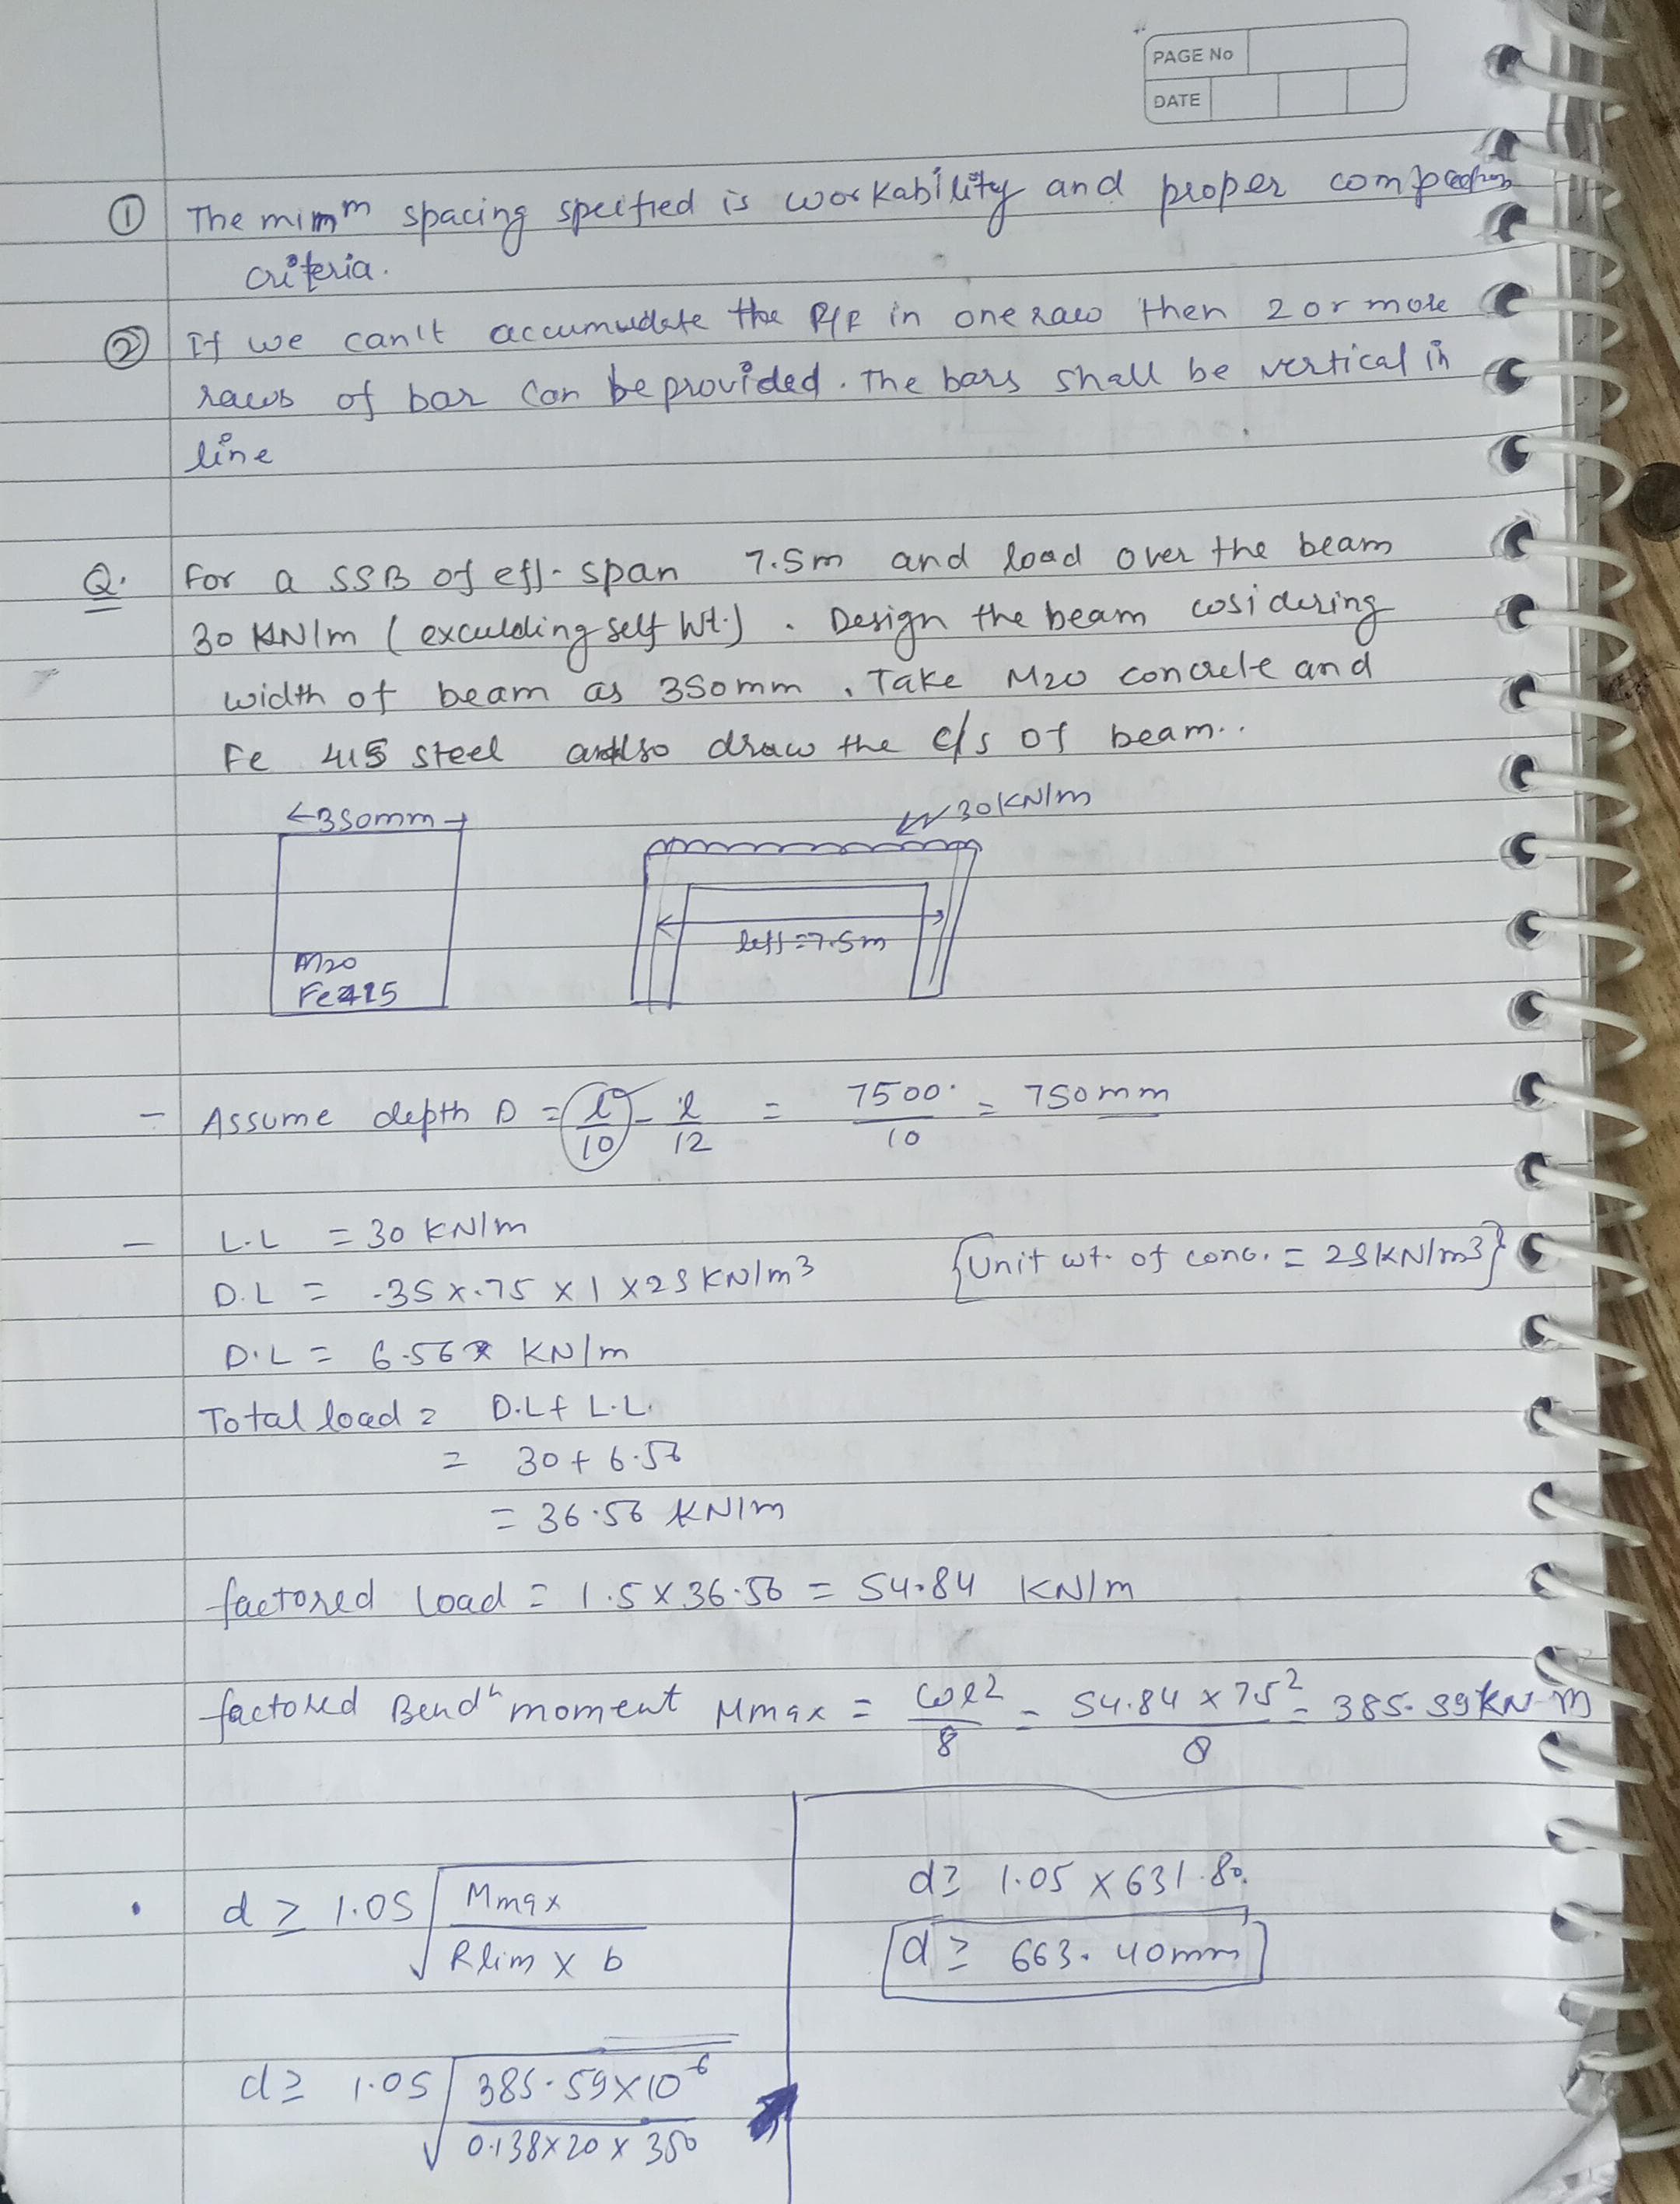 PAGE No
DATE
① The mimm spacing speified is workability and proper compaction
criteria.
② If we can't accumudate the R/F in one raw then 2 or more
raws of bar can be provided. The bars shall be vertical in
line
Q. For a SSB of eff. span 7.5m and load over the beam
30 KN/m (exculding self Wt.). Design the beam cosidering
width of beam as 350mm. Take M20 concrete and
Fe 415 steel also draw the c/s of beam..
350mm
30KN/m
leff = 7.5m
M20
Fe415
- Assume depth D = l/10 - l/12 = 7500/10 = 750mm
- L.L = 30 KN/m
D.L = .35 x .75 x 1 x 25 KN/m3 {Unit wt. of conc. = 25KN/m3}
D.L = 6.56 KN/m
Total load = D.L + L.L.
= 30 + 6.56
= 36.56 KN/m
factored load = 1.5 x 36.56 = 54.84 KN/m
factored Bendn moment Mmax = ωl2/8 = 54.84 x 7.52/8 = 385.59KN-m
• d ≥ 1.05 √ Mmax / Rlim x b
d ≥ 1.05 √ 385.59 x 10-6 / 0.138 x 20 x 350
d ≥ 1.05 x 631.80
d ≥ 663.40mm